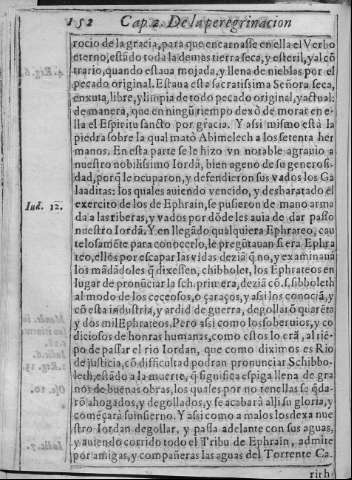 152 Cap. 2. De la peregrinacion
rocio de la gracia, para que encarnasse en ella el Verbo
eterno, estãdo toda la demas tierra seca, y esteril, y al cõ
trario, quando estaua mojada, y llena de nieblas por el
pecado original. Estaua esta sacratissima Señora seca,
enxuta, libre, y limpia de todo pecado original, y actual:
de manera, que en ningũ tiempo dexò de morar en e-
lla el Espiritu sancto por gracia. Y assi mismo està la
piedra sobre la qual matò Abimelech a los setenta her
manos. En esta parte se le hizo vn notable agrauio a
nuestro nobilissimo Iordã, bien ageno de su generosi-
dad, porq̃ le ocuparon, y defendieron sus vados los Ga
laaditas: los quales auiendo vencido, y desbaratado el
Iud. 12.
exercito de los de Ephrain, se pusieron de mano arma
da a las riberas, y vados por dõde les auia de dar passo
nuestro Iordã. Y en llegãdo qualquiera Ephrateo, cau
telosamẽte para conocerlo, le preguntauan si era Ephra
teo, ellos por escapar las vidas deziã q̃ no, y examinauã
los mãdãdoles q̃ dixessen, chibbolet, los Ephrateos en
lugar de pronũciar la sch. primera, deziã cõ s. sibboleth
al modo de los ceceosos, o çaraços, y assi los conociã, y
cõ esta industria, y ardid de guerra, degollarõ quarẽta
y dos mil Ephrateos. Pero assi como los soberuios, y co
diciosos de honras humanas, como estos lo erã, al tiẽ-
po de passar el rio Iordan, que como diximos es Rio
de justicia, cõ difficultad podran pronunciar Schibbo-
leth, estãdo a la muerte, q̃ significa espiga llena de gra
nos de buenas obras, los quales por no tenerllas se q̃da-
rõ ahogados, y degollados, y se acabarà alli su gloria, y
começarà su infierno. Y assi como a malos los dexa nue
stro Iordan degollar, y passa adelante con sus aguas,
y auiendo corrido todo el Tribu de Ephrain, admite
por amigas, y compañeras las aguas del Torrente Ca.
rith